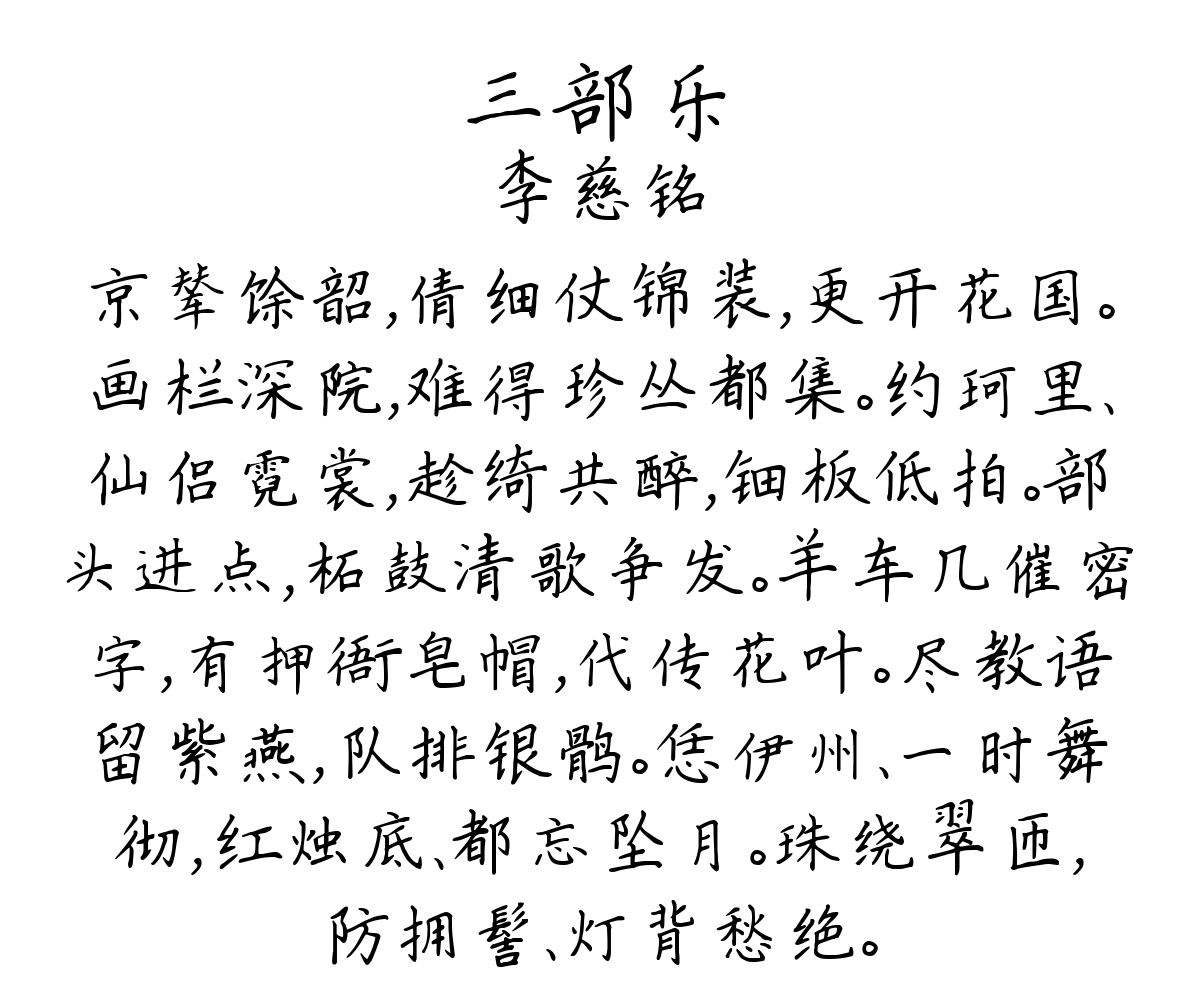 三部乐
李慈铭
京辇馀韶,倩细仗锦装,更开花国。
画栏深院,难得珍丛都集。约珂里、
仙侣霓裳,趁绮共醉,钿板低拍。部
头进点,柘鼓清歌争发。羊车几催密
字,有押衙皂帽,代传花叶。尽教语
留紫燕,队排银鹘。恁伊州、一时舞
彻,红烛底、都忘坠月。珠绕翠匝,
防拥髻、灯背愁绝。